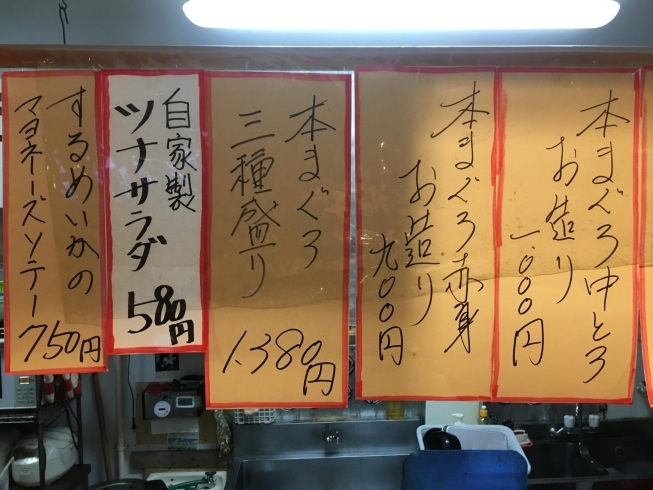 本まぐろ中とろ
お造り
一、〇〇〇円
本まぐろ赤身
お造り
九〇〇円
本まぐろ
三種盛り
1.380円
自家製
ツナサラダ
580円
するめいかの
マヨネーズソテー
750円